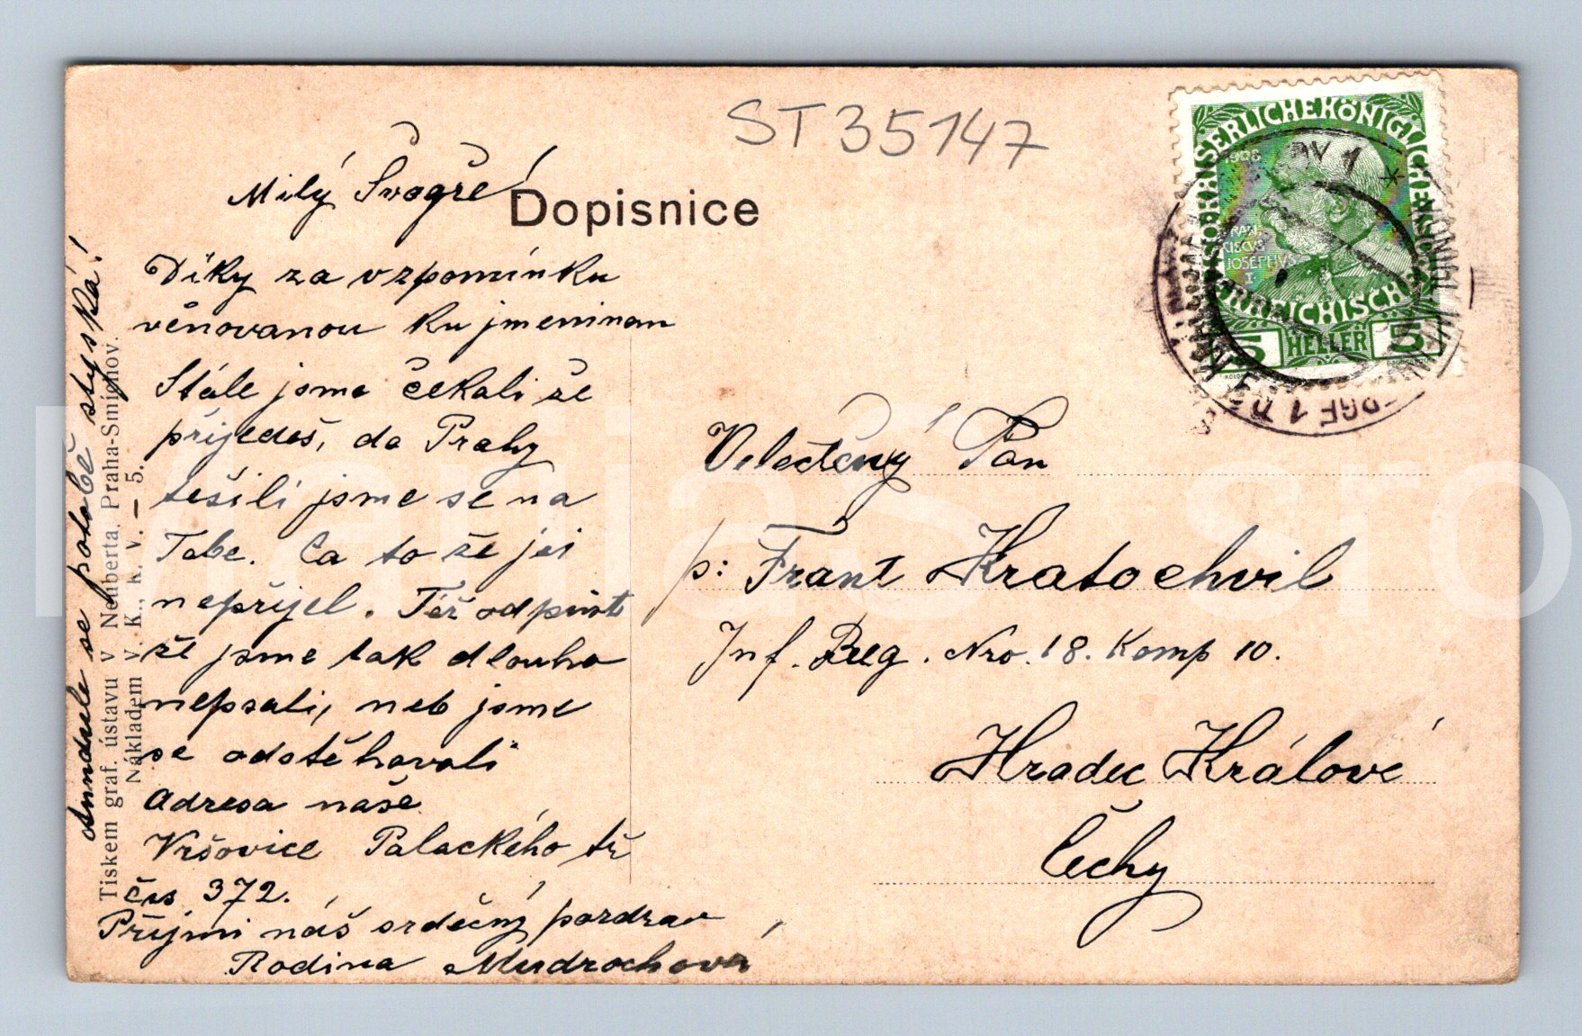 ST35147
Dopisnice
Milý Švagře!
Díky za vzpomínku
věnovanou ku jmeninam
Stále jsme čekali že
přijedeš, do Prahy
těšili jsme se na
Tebe. Ča to že jsi
nepřijel. Též odpusť
že jsme tak dlouho
nepsali, neb jsme
se odstěhovali
Adresa naše
Vršovice Palackého tř
čis 372.
Přijmi náš srdečný pozdrav
Rodina Mudrochová
se po tobě stýská!
Tiskem graf. ústavu v Neuberta, Praha-Smíchov.
Nákladem v. K., k. v. — 5.
Velectěný Pan
p: Frant Kratochvil
Inf. Reg. Nro. 18. Komp 10.
Hradec Králové
Čechy
KAISERLICHE KÖNIGLICHE
ÖSTERREICHISCHE
1908
FRAN
CISCVS
IOSEPHVS
I
5 HELLER 5